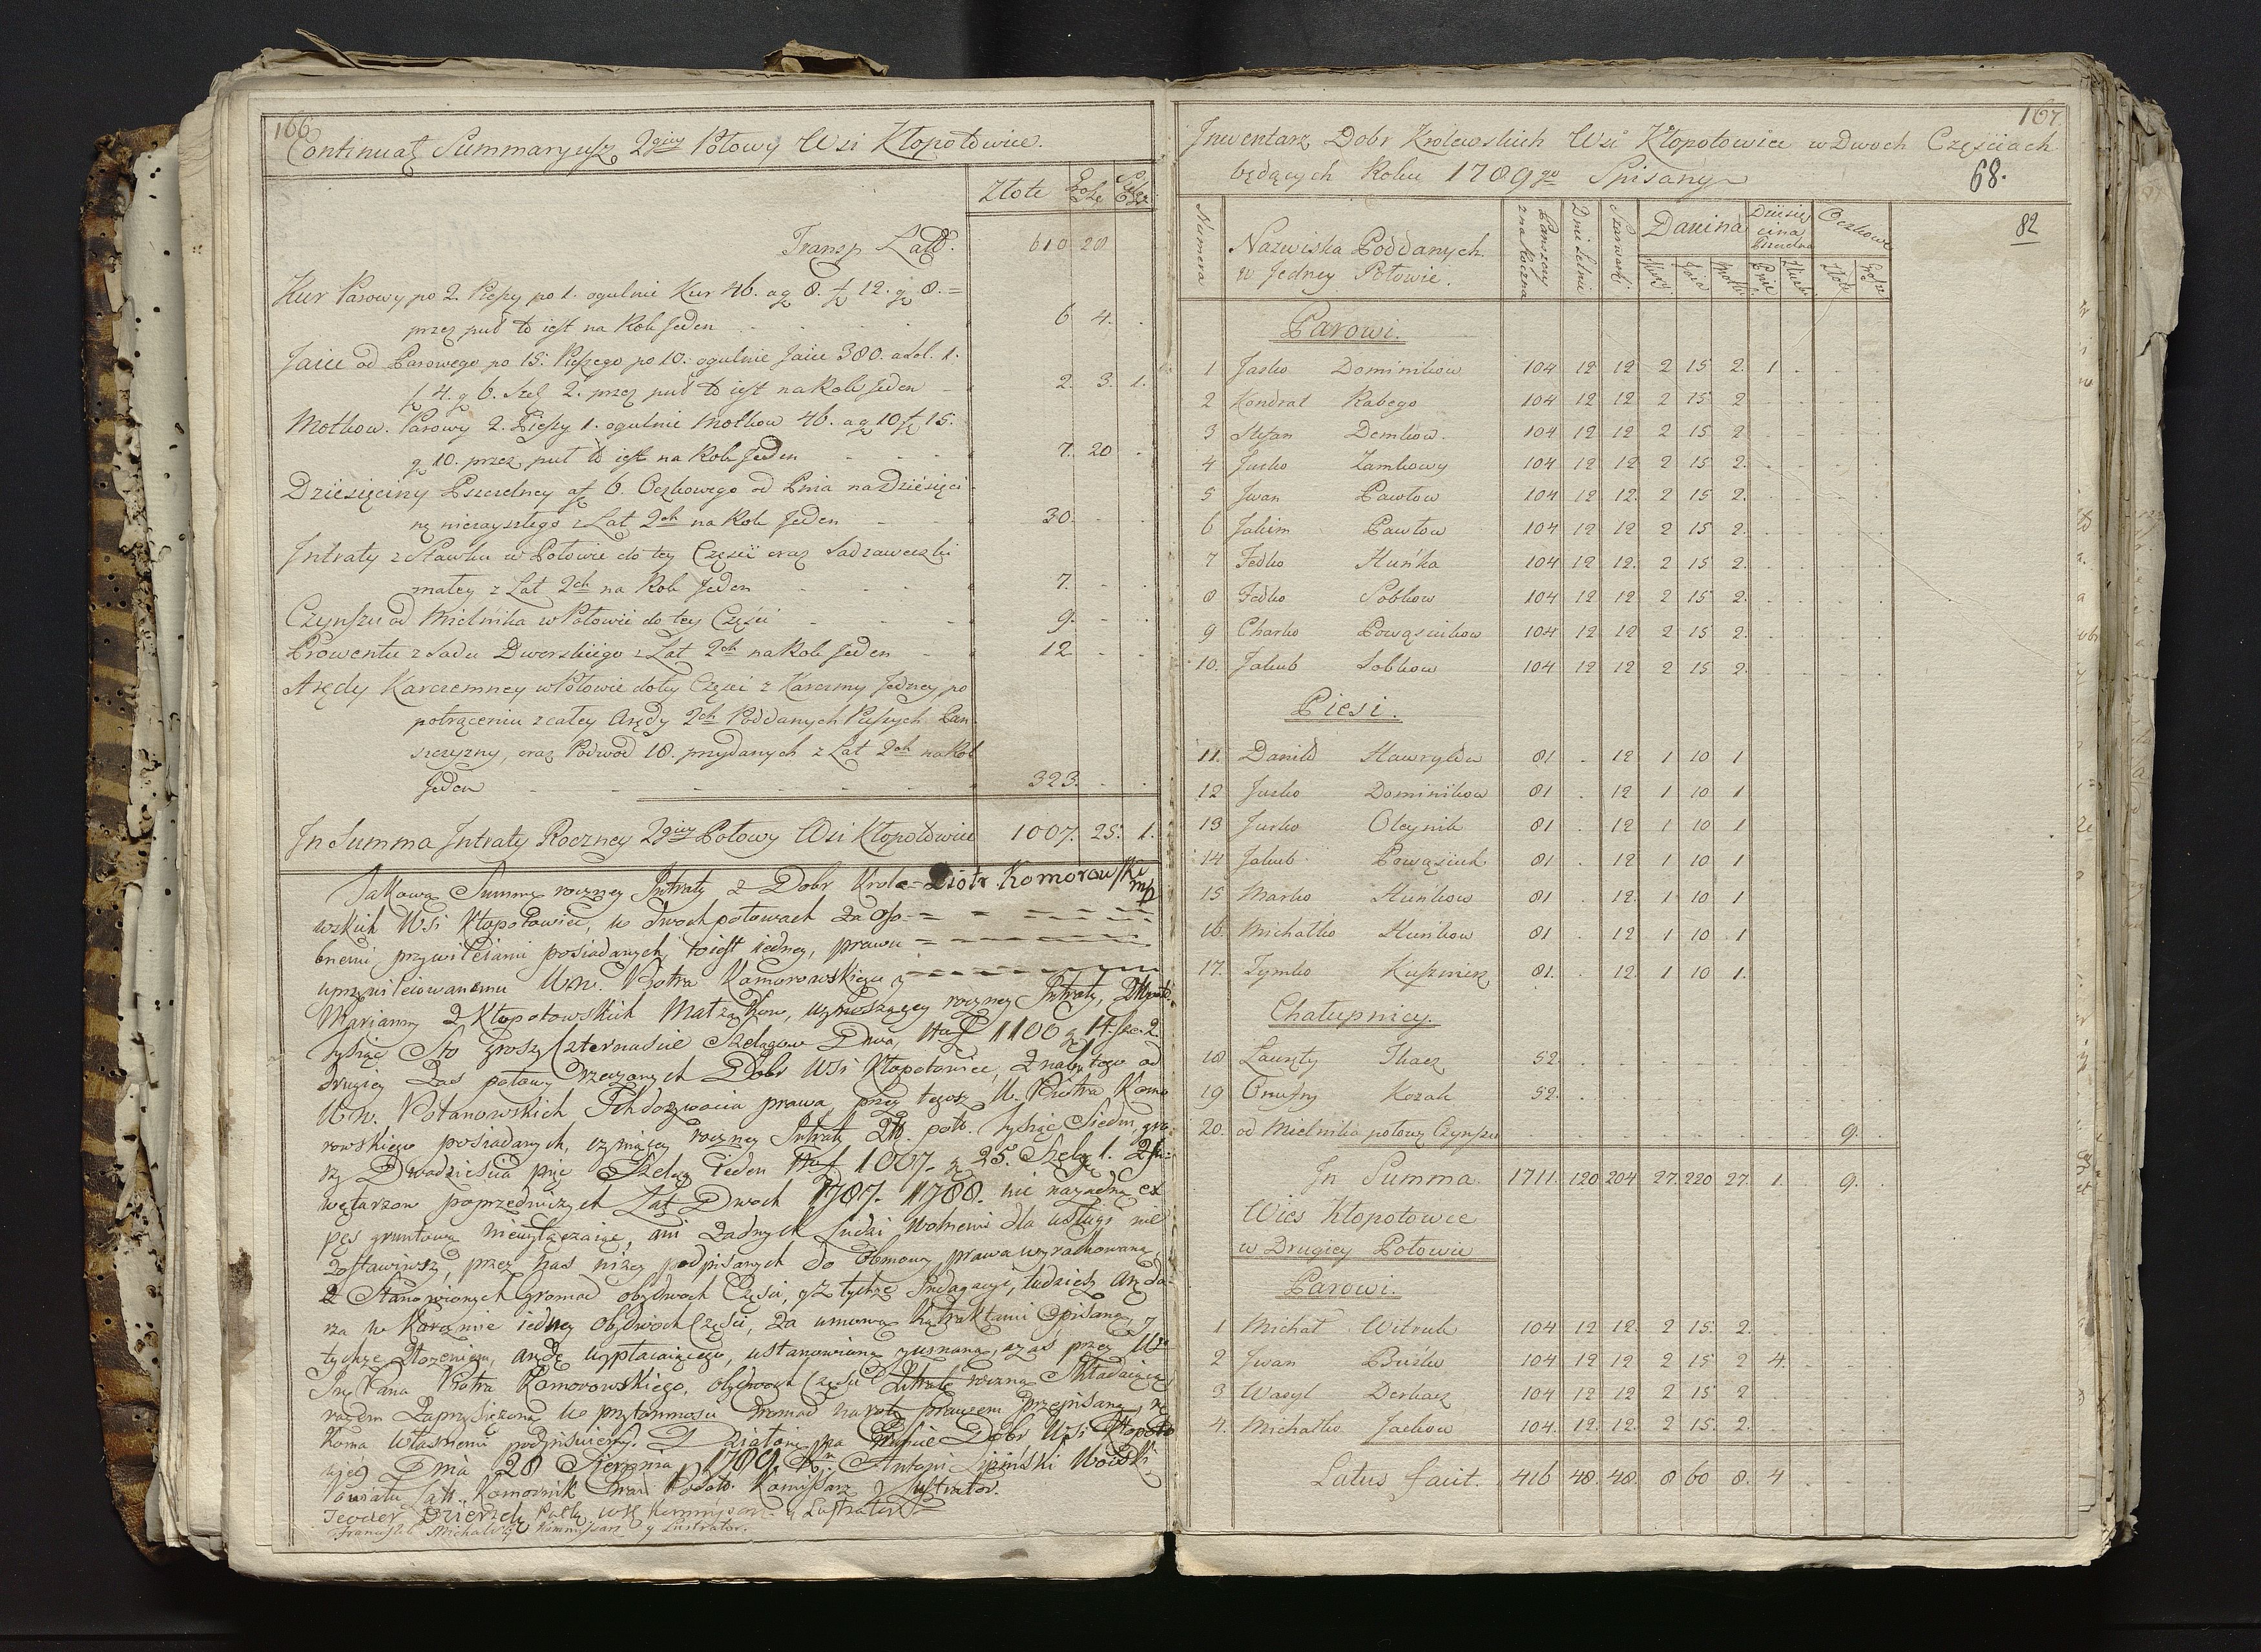 166
Continuat. Summaryusz 2giey Połowy Wsi Kłopotowiec.
Złote
Transp. Latt. 610 20
Kur Parowy po 2. Pieszy po 1. ogulnie Kur 46. a g 8. f 12. g 8. =
przez puł to iest na Rok Jeden 6 4.
Jaiec od Parowego po 15. Pieszego po 10. ogulnie Jaiec 380. a sol. 1.
f 4. g 6. Szel 2. przez puł to iest na Rok Jeden 2. 3. 1.
Motkow. Parowy 2. Pieszy 1. ogulnie Motkow 46. a g 10 f 15.
g 10. przez puł to iest na Rok Jeden 7. 20
Dziesięciny Pszczelney a f 6. Oczkowego od Pnia na Dziesięci
nę z Lat 2ch na Rok Jeden 30.
Intraty z Stawku w Połowie do tey Części oraz Sadzaweczki
małey z Lat 2ch na Rok Jeden 7.
Czynszu od Mielnika w Połowie do tey Części 9.
Prowentu z Sadu Dworskiego z Lat 2ch na Rok Jeden 12
Arędy Karczemney w Połowie do tey Części z Karczmy Jedney, po
potrąceniu z całey Arędy 2ch Poddanych Pieszych Pan
szczyzny, oraz Podwod 18. przydanych z Lat 2ch na Rok
Jeden 323.
In Summa Intraty Roczney 2giey Połowy Wsi Kłopotowiec 1007. 25. 1.
Takową Summę roczney Intraty z Dobr Krole= Piotr Komorowski mp
wskich Wsi Kłopotowiec, w dwoch połowach za oso=
bnemi przywileiami posiadanych, toiest iedney, prawu
uprzywileiowanemu Ww. Piotra Komorowskiego y
Marianny z Kłopotowskich Małżąkow, wynoszącey roczney Intraty,
tysiąc Sto groszy Czternaście Szelągow Dwa, 1100 g 14. sze. 2
drugiey zas połowy rzeczonych Dobr Wsi Kłopotowiec, z nabytego od
Ww. Potanowskich prawa, przez tegoż U. Piotra Komo
rowskiego posiadanych, czyniącey roczney Intraty Zł. pol. tysiąc Siedm, gro
szy Dwadzieścia pięć Szeląg ieden 1007. g 25. Szelg 1.
wętarzow poprzedniczych Lat Dwoch 1787. 1788. nic na żadną ex
pęs gruntową niewyłączaiąc, ani żadnych ludzi wolnemi dla usługi nie
zostawiwszy, przez nas niżey podpisanych do Obmowy prawa wyrachowaną,
z Stanowionych gromad obydwoch Części, tudzież Aręda=
rza w Karczmie iedney obydwoch Części, za umową Kątraktami opisaną, y
tychże złożeniem, arędę wypłacaiącego, ustanowioną y uznaną, a zas przez W
Jmć Pana Piotra Komorowskiego, obydwoch Części Intratę roczną składaiącą
razem zaprzysiężoną w przytomności gromad na rotę prawem przepisaną, rę
koma własnemi podpisuiemy. Działo się na gruncie Dobr Wsi Kłopoto
wiec Dnia 28 Sierpnia 1789. Rku Antoni Lipiński Woiski
Powiatu Komornik Podol. Komissarz y Lustrator.
Teodor Dzierzek Kommisarz y Lustrator
Franciszek Michalski Kommissarz y Lustrator.
167.
Jnwentarz Dobr Krolewskich Wsi Kłopotowiec w Dwoch Częściach
będących Roku 1789go Spisany
68.
82
Numera
Nazwiska Poddanych w Jedney Połowie.
Panszczyzna Roczna
Dnie Letnie
Szarwarki
Danina
Dziesięcina Pszczelna
Oczkowe
Parowi.
1 Jasko Dominikow 104 12 12 2 15 2. 1
2 Kondrat Rabego 104 12 12 2 15 2
3 Stefan Demkow. 104 12 12 2 15 2
4 Jusko Zamkowy 104 12 12 2 15 2.
5 Jwan Pawłow 104 12 12. 2 15 2.
6 Jakim Pawłow 104 12 12 2 15 2.
7 Fedko Huńka 104 12 12. 2 15 2.
8 Fedko Sobkow 104 12 12 2 15 2.
9 Charko Powąziukow 104 12 12 2 15 2.
10. Jakub Sobkow 104 12 12 2 15 2.
Piesi.
11. Daniło Hawryłow 81 12 1 10 1
12 Jusko Dominikow 81 12 1 10 1
13 Jurko Oleynik 81 12 1 10 1
14 Jakub Powąziuk 81 12 1 10 1
15 Marko Huńkow 81 12. 1 10 1
16. Michałko Huńkow 81 12 1 10 1
17. Tymko Kusznierz 81. 12. 1 10 1.
Chałupnicy.
18 Ławryty Tkacz 52.
19 Onufry Kozak 52.
20. od Mielnika połowę Czynszu 9.
In Summa. 1711. 120 204 27. 220 27. 1. 9.
Wies Kłopotowce
w Drugiey Połowie
Parowi.
1 Michał Witruk 104 12 12. 2 15. 2.
2 Jwan Buśko 104 12 12 2 15 2 4.
3 Wasyl Derkacz 104 12 12 2 15 2
4. Michałko Jackow 104. 12. 12. 2 15. 2.
Latus facit. 416 48. 48. 8 60 8. 4